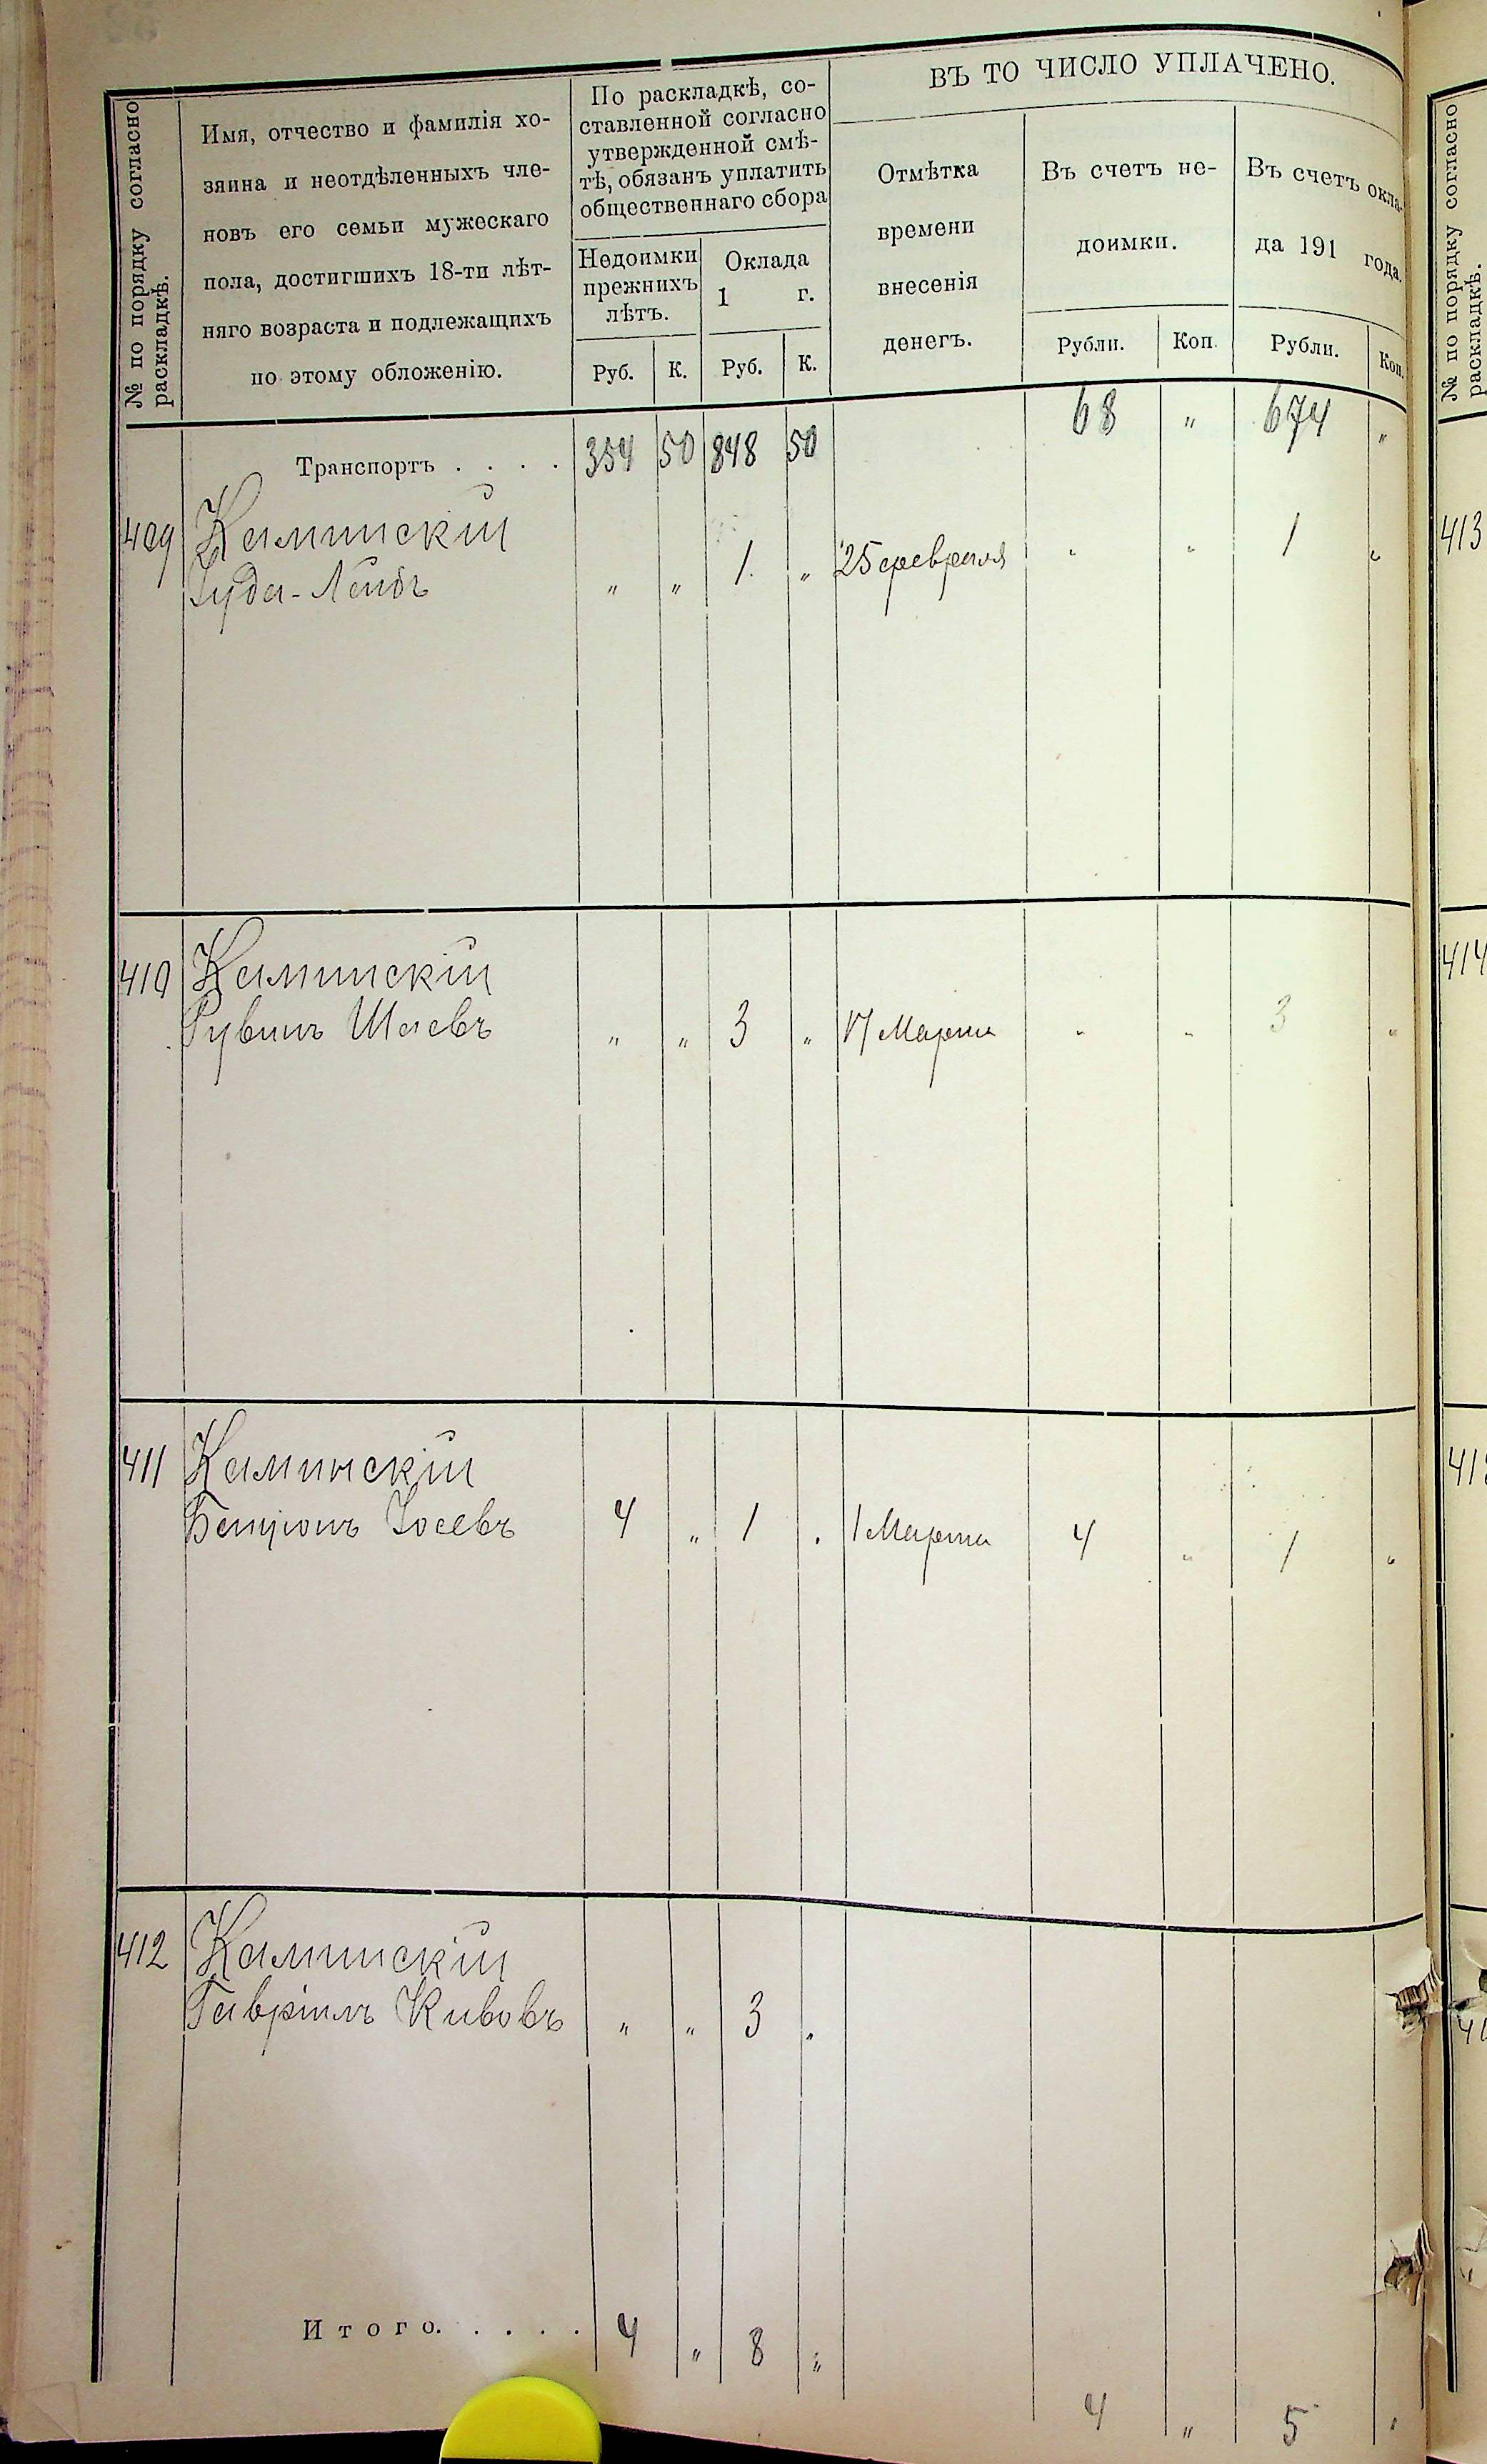 № по порядку согласно
раскладкѣ.
Имя, отчество и фамилія хо-
зяина и неотдѣленныхъ чле-
новъ его семьи мужескаго
пола, достигшихъ 18-ти лѣт-
няго возраста и подлежащихъ
по этому обложенію.
По раскладкѣ, со-
ставленной согласно
утвержденной смѣ-
тѣ, обязанъ уплатить
общественнаго сбора
Недоимки
прежнихъ
лѣтъ.
Оклада
1 г.
Руб. К. Руб. К.
ВЪ ТО ЧИСЛО УПЛАЧЕНО.
Отмѣтка
времени
внесенія
денегъ.
Въ счетъ не-
доимки.
Рубли. Коп.
Въ счетъ окла-
да 191 года.
Рубли. Коп.
Транспортъ . . . . 354 50 848 50 68 " 674 "
409 Каминскій
Іуда-Лейбъ " " 1 " 25 февраля " " 1 "
410 Каминскій
Рувинъ Шаевъ " " 3 " 17 Марта " " 3 "
411 Каминскій
Бенціонъ Іосевъ 4 " 1 " 1 Марта 4 " 1 "
412 Каминскій
Гавріилъ Кивовъ " " 3 "
Итого. . . . . 4 " 8 "
4 " 5 "
№ по порядку согласно
раскладкѣ.
413
414